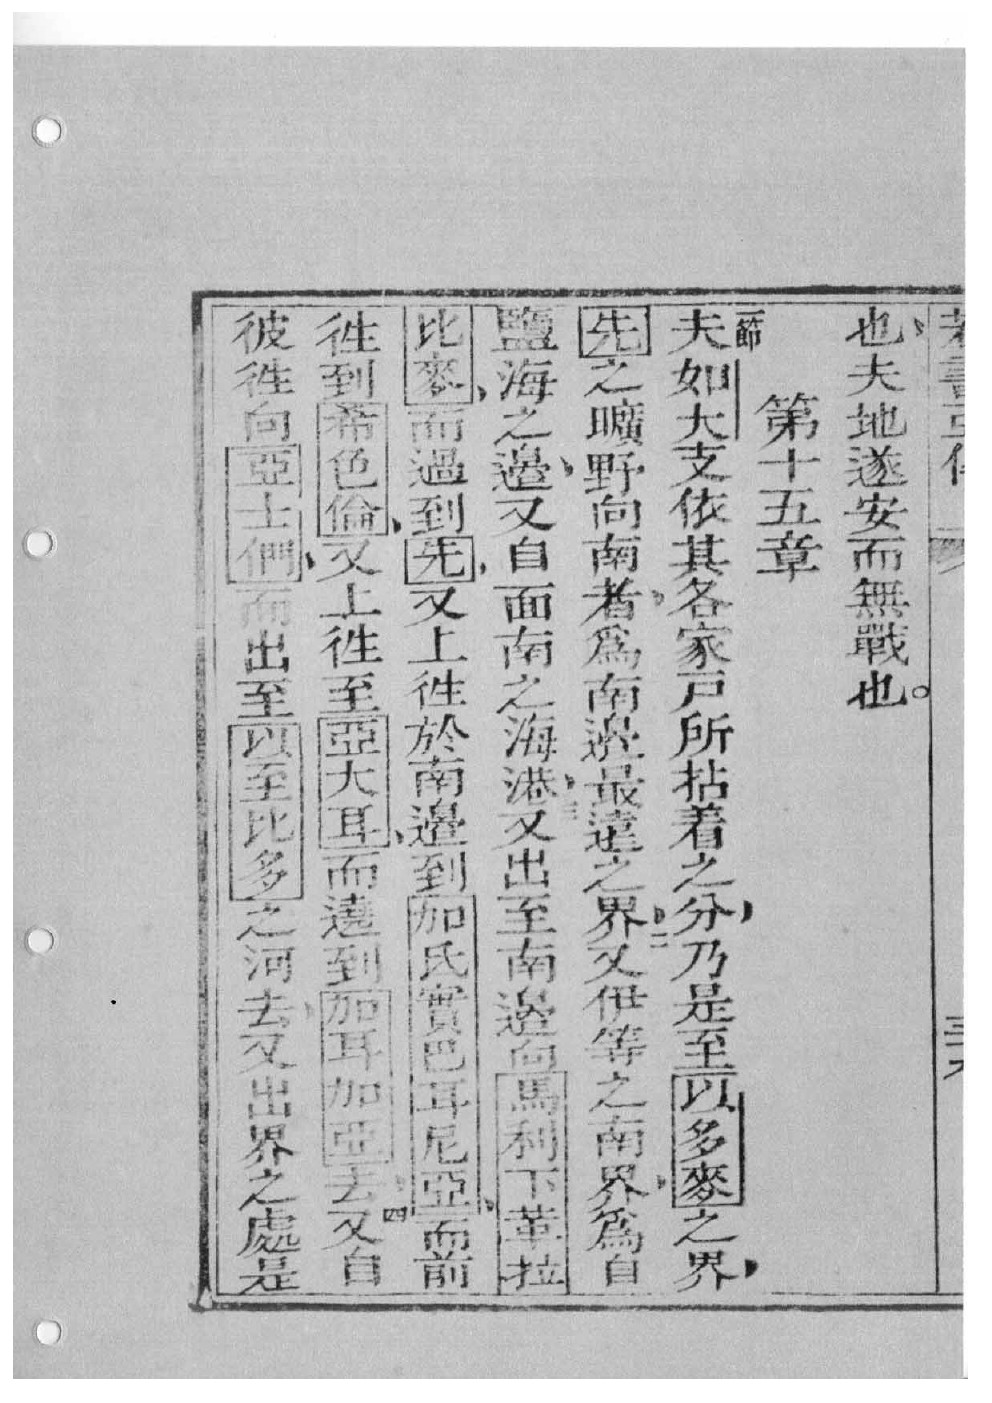 若書亞傳
也夫地遂安而無戰也。
第十五章
一節夫如大支依其各家戸所拈着之分、乃是至以多麥之界、
先之曠野向南者、爲南邊最遠之界、二又伊等之南界、爲自
鹽海之邊、又自面南之海港、三又出至南邊向馬利下革拉
比麥、而過到先、又上徃於南邊到加氏實巴耳尼亞、而前
徃到希色倫、又上徃至亞大耳、而遶到加耳加亞去、四又自
彼徃向亞士們、而出至以至比多之河去、又出界之處是